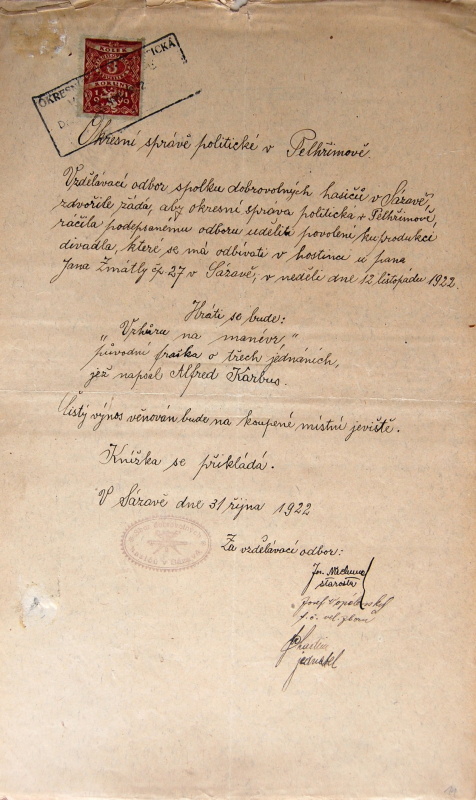 KOLEK
3
KORUNY
1919
OKRESNÍ
TICKÁ
Okresní správě politické v Pelhřimově.
Vzdělávací odbor spolku dobrovolných hasičů v Sázavě,
zdvořile žádá, aby okresní správa politická v Pelhřimově,
ráčila podepsanému odboru uděliti povolení ku produkci
divadla, které se má odbívati v hostinci u pana
Jana Zmátly čp. 27 v Sázavě, v neděli dne 12. listopadu 1922.
Hráti se bude:
„Vzhůru na manévr,"
původní fraška o třech jednáních,
jež napsal Alfred Karbus.
Čistý výnos věnován bude na koupené místní jeviště.
Knížka se přikládá.
V Sázavě dne 31 října 1922
Za vzdělávací odbor:
Jos.
starosta
Josef
jednatel